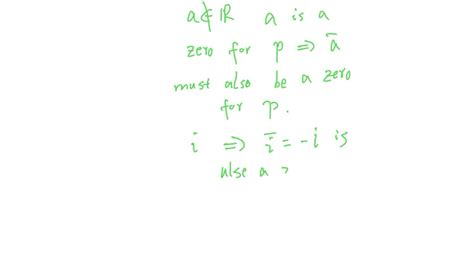 a ∉ ℝ a is a
zero for p ⇒ ā
must also be a zero
for p.
i ⇒ ī = -i is
also a